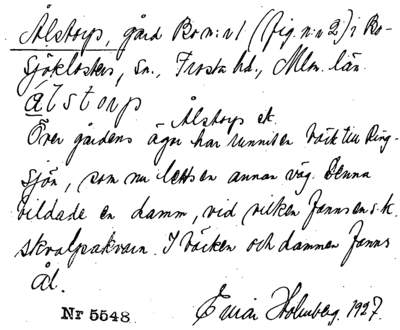 Ålstorp, gård Bo n:r 1 (fig. n:r 2) i Bo-
sjökloster, sn., Frosta hd., Mlm. län.
Ålstorp
Ålstorp et.
Över gårdens ägor har runnit en bäck till Ring-
sjön, som nu letts en annan väg. Denna
bildade en damm, vid vilken fanns en s.k.
skvalpakvarn. I bäcken och dammen fanns
ål.
Nr 5548. Einar Holmberg. 1927.